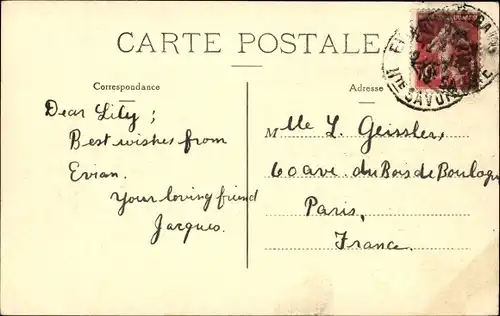 CARTE POSTALE
Correspondance
Adresse
Dear Lily;
Best wishes from
Evian.
Your loving friend
Jacques.
Mlle L. Geissler,
60 ave. du Bois de Boulogne
Paris,
France.
Hte SAVOIE